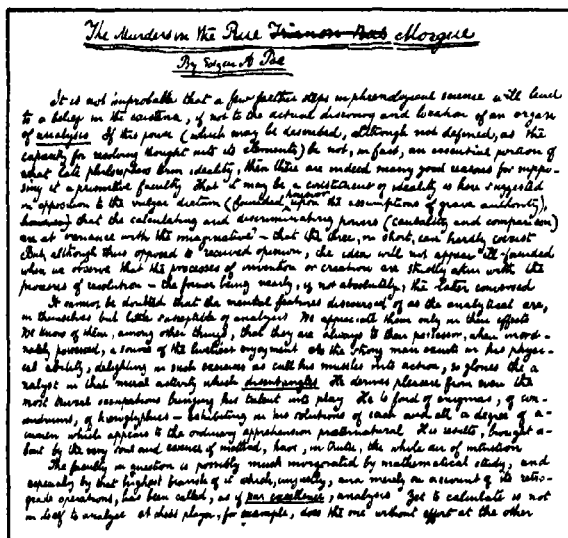 The Murders in the Rue Trianon Bas Morgue
By Edgar A Poe
It is not improbable that a few farther steps in phrenological science will lead
to a belief in the existence, if not to the actual discovery and location of an organ
of analysis. If this power (which may be described, although not defined, as the
capacity for resolving thought into its elements) be not, in fact, an essential portion of
what late philosophers term ideality, then there are indeed many good reasons for suppo-
sing it a primitive faculty. That it may be a constituent of ideality is here suggested
in opposition to the vulgar dictum (founded, however, upon the assumptions of grave authority),
however) that the calculating and discriminating powers (causality and comparison)
are at variance with the imaginative - that the three, in short, can hardly coexist
But although thus opposed to received opinion, the idea will not appear ill-founded
when we observe that the processes of invention or creation are strictly akin with the
processes of resolution - the former being nearly, if not absolutely, the latter conversed
It cannot be doubted that the mental features discoursed of as the analytical are,
in themselves but little susceptible of analysis We appreciate them only in their effects
We know of them, among other things, that they are always to their possessor, when inordi-
nately possessed, a source of the liveliest enjoyment As the strong man exults in his physi-
cal ability, delighting in such exercises as call his muscles into action, so glories the a-
nalyst in that moral activity which disentangles He derives pleasure from even the
most trivial occupations bringing his talent into play He is fond of enigmas, of con-
undrums, of hieroglyphics - exhibiting in his solutions of each and all a degree of a-
cumen which appears to the ordinary apprehension praeternatural His results, brought a-
bout by the very soul and essence of method, have, in truth, the whole air of intuition
The faculty in question is possibly much invigorated by mathematical study, and
especially by that highest branch of it which, unjustly, and merely on account of its retro-
grade operations, has been called, as if par excellence, analysis Yet to calculate is not
in itself to analyze A chess player, for example, does the one without effort at the other